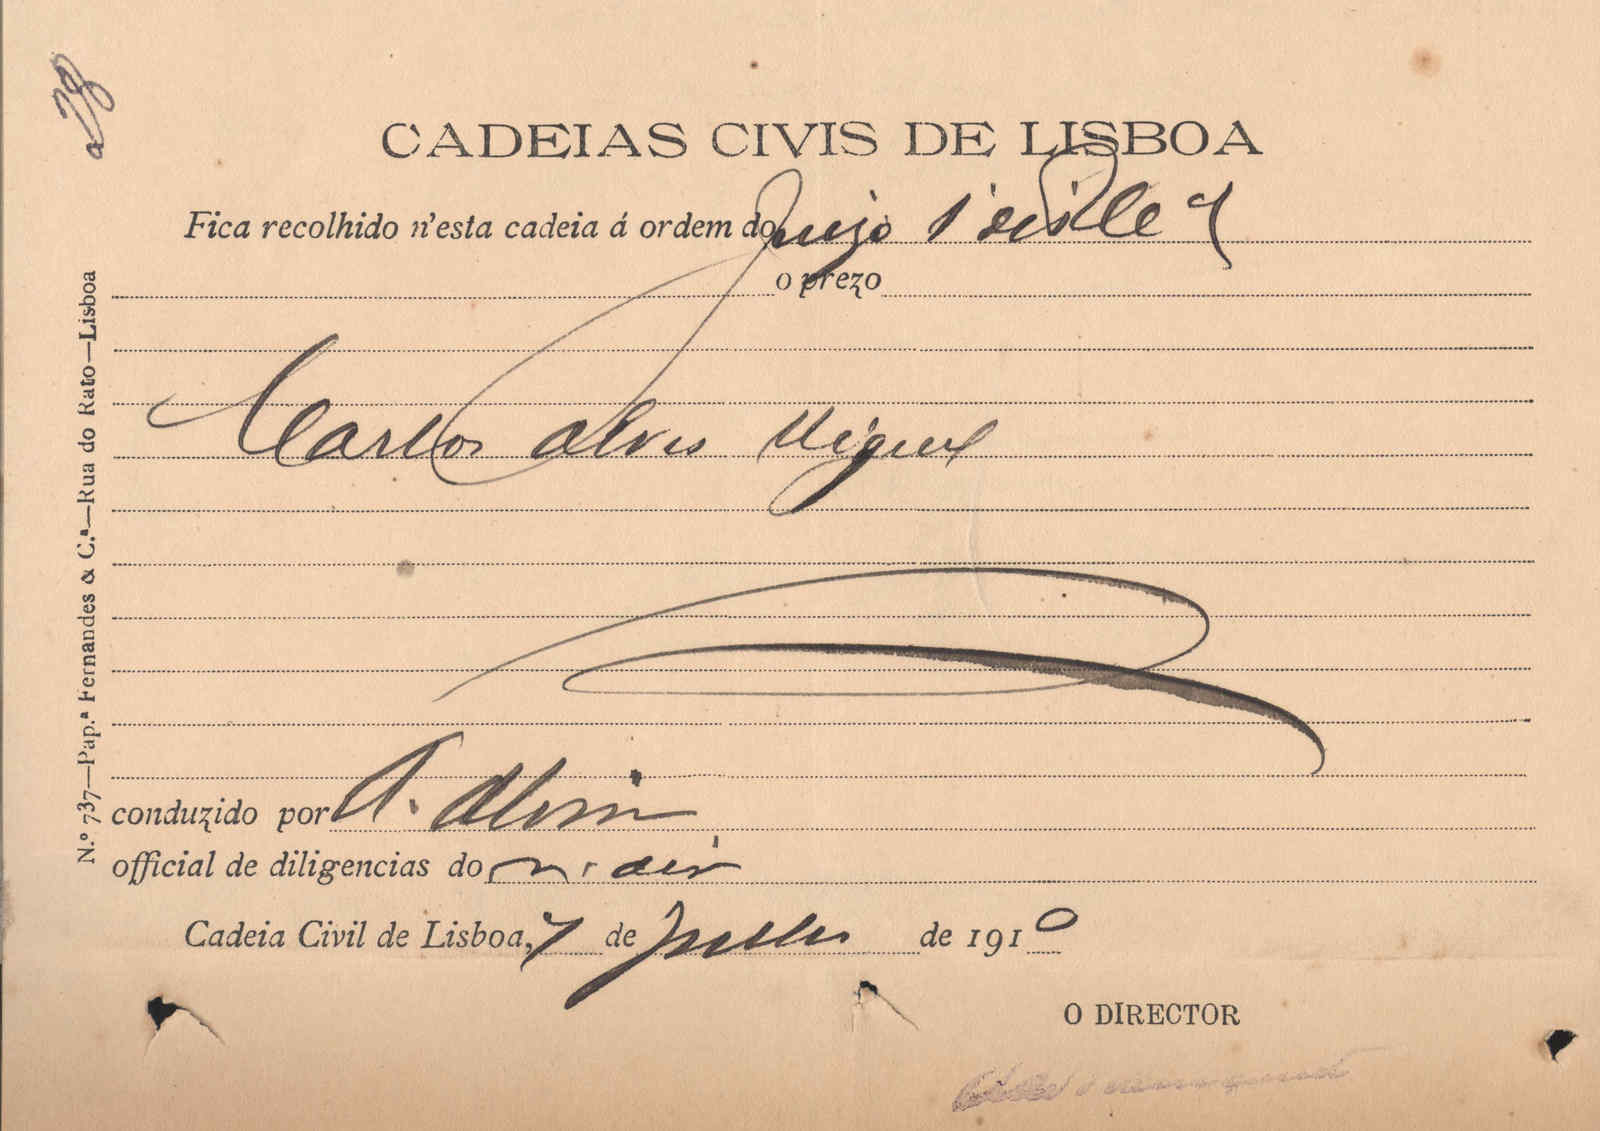 CADEIAS CIVIS DE LISBOA
Fica recolhido n'esta cadeia á ordem do Juizo
o prezo
Carlos Alves Miguel
conduzido por A.
official de diligencias do
Cadeia Civil de Lisboa, 7 de Julho de 1910
O DIRECTOR
N.º 737—Pap.ª Fernandes & C.ª—Rua do Rato—Lisboa